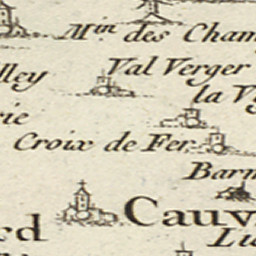 Min des Cham
lley
Val Verger
la V
rie
Croix de Fer
Barn
Cauv
rd
Lu